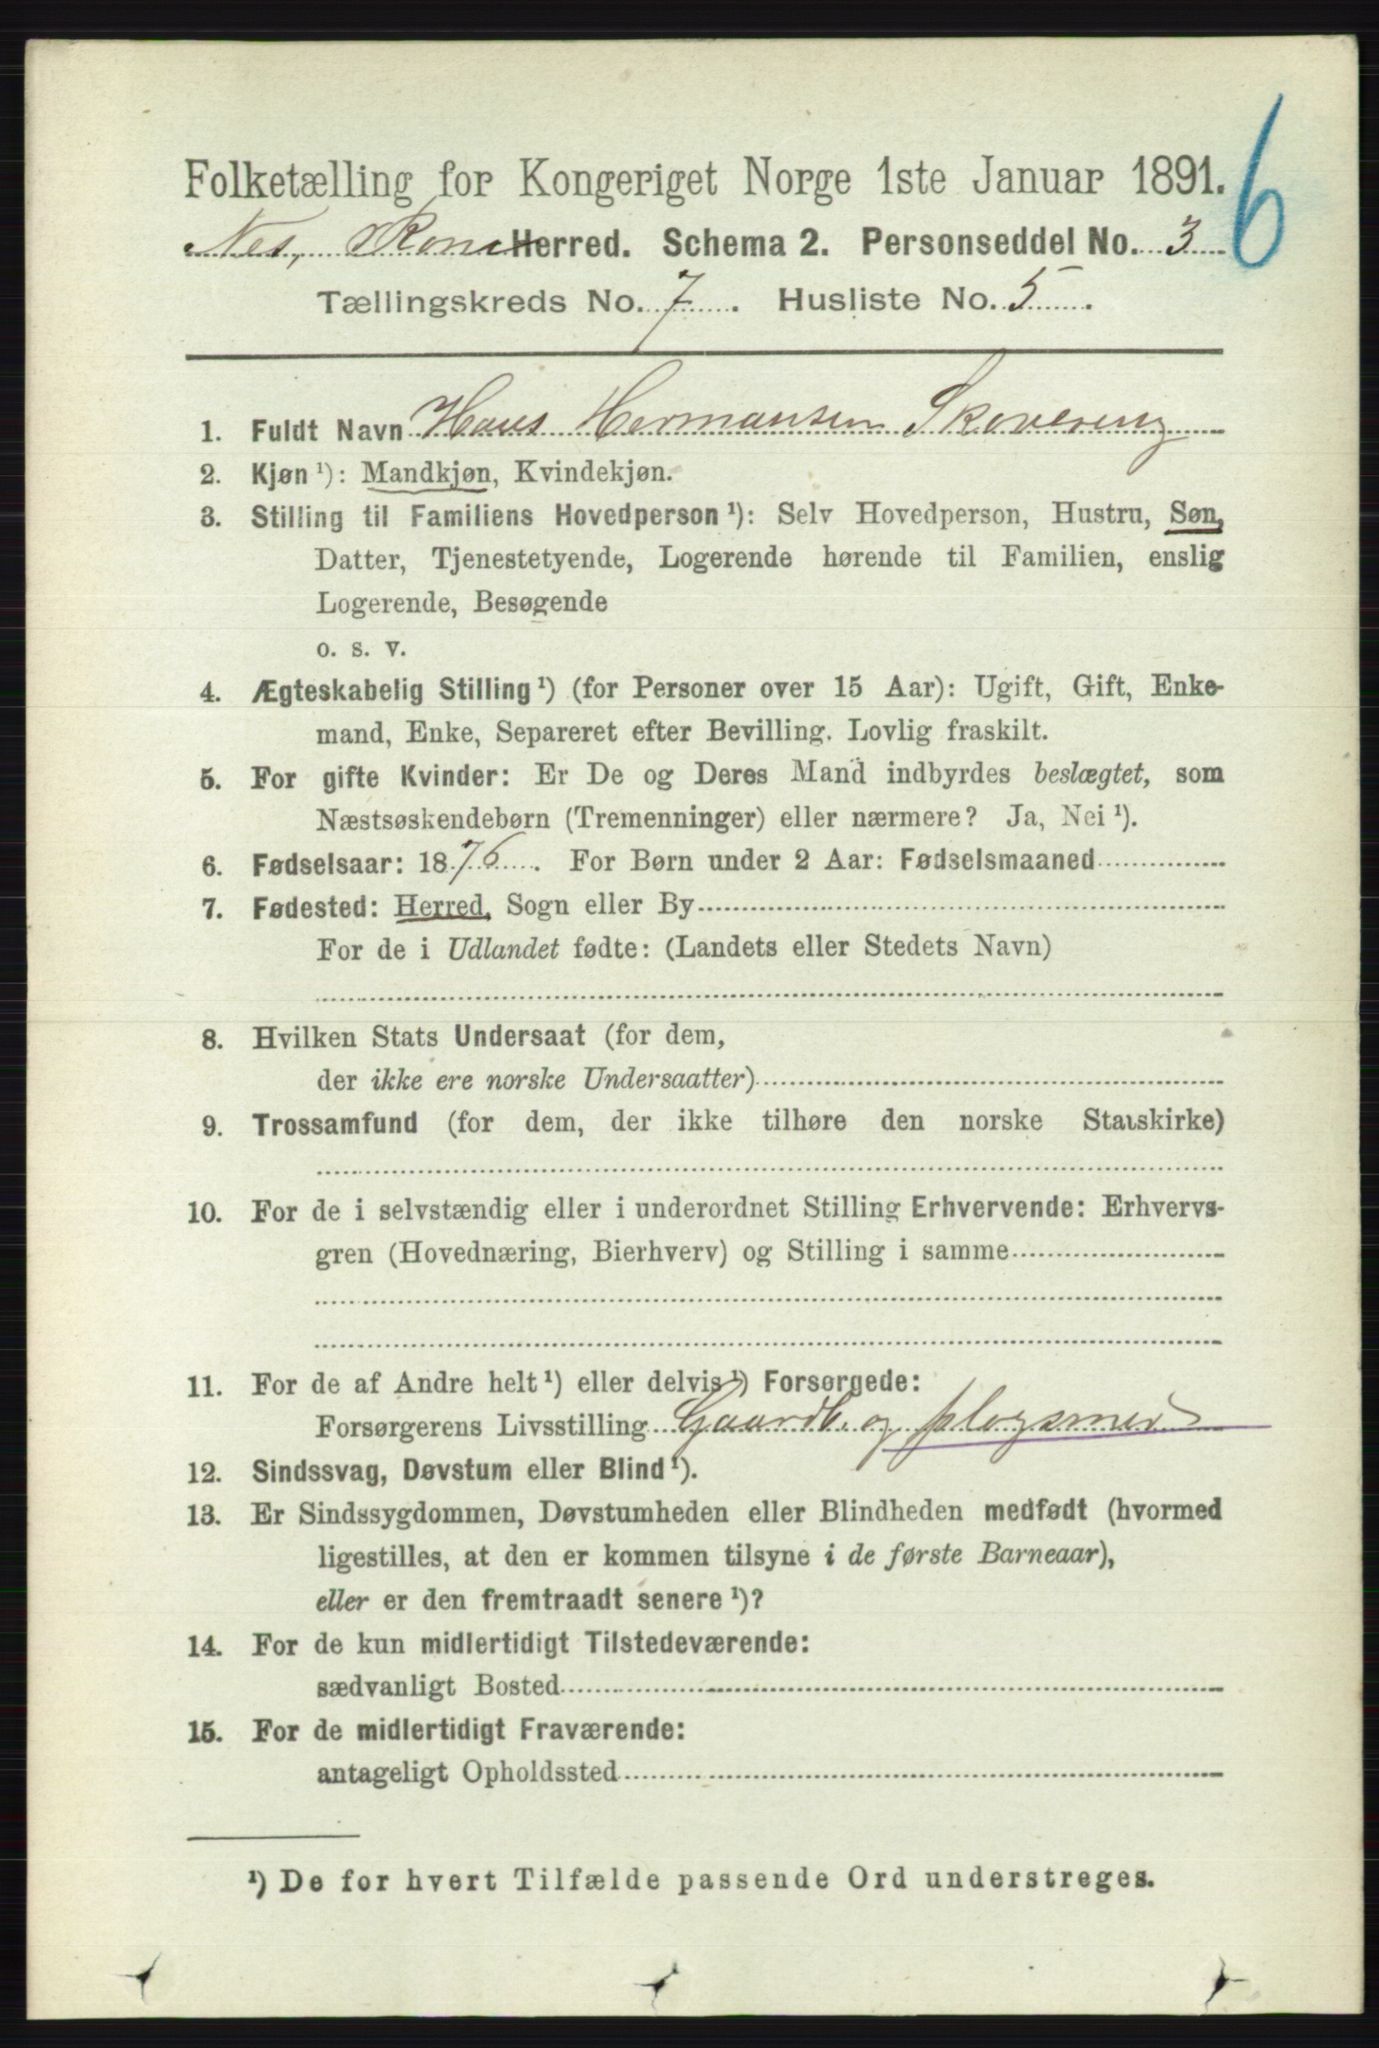 6
Folketælling for Kongeriget Norge 1ste Januar 1891.
Nes, Herred. Schema 2. Personseddel No. 3
Tællingskreds No. 7. Husliste No. 5.
1. Fuldt Navn Hans Hermansen Skovereng
2. Kjøn ¹): Mandkjøn, Kvindekjøn.
3. Stilling til Familiens Hovedperson ¹): Selv Hovedperson, Hustru, Søn,
Datter, Tjenestetyende, Logerende hørende til Familien, enslig
Logerende, Besøgende
o. s. v.
4. Ægteskabelig Stilling ¹) (for Personer over 15 Aar): Ugift, Gift, Enke-
mand, Enke, Separeret efter Bevilling. Lovlig fraskilt.
5. For gifte Kvinder: Er De og Deres Mand indbyrdes beslægtet, som
Næstsøskendebørn (Tremenninger) eller nærmere? Ja, Nei ¹).
6. Fødselsaar: 1876. For Børn under 2 Aar: Fødselsmaaned
7. Fødested: Herred, Sogn eller By
For de i Udlandet fødte: (Landets eller Stedets Navn)
8. Hvilken Stats Undersaat (for dem,
der ikke ere norske Undersaatter)
9. Trossamfund (for dem, der ikke tilhøre den norske Statskirke)
10. For de i selvstændig eller i underordnet Stilling Erhvervende: Erhvervs-
gren (Hovednæring, Bierhverv) og Stilling i samme
11. For de af Andre helt ¹) eller delvis ¹) Forsørgede:
Forsørgerens Livsstilling Gaardb. og plogsmed
12. Sindssvag, Døvstum eller Blind ¹).
13. Er Sindssygdommen, Døvstumheden eller Blindheden medfødt (hvormed
ligestilles, at den er kommen tilsyne i de første Barneaar),
eller er den fremtraadt senere ¹)?
14. For de kun midlertidigt Tilstedeværende:
sædvanligt Bosted
15. For de midlertidigt Fraværende:
antageligt Opholdssted
¹) De for hvert Tilfælde passende Ord understreges.